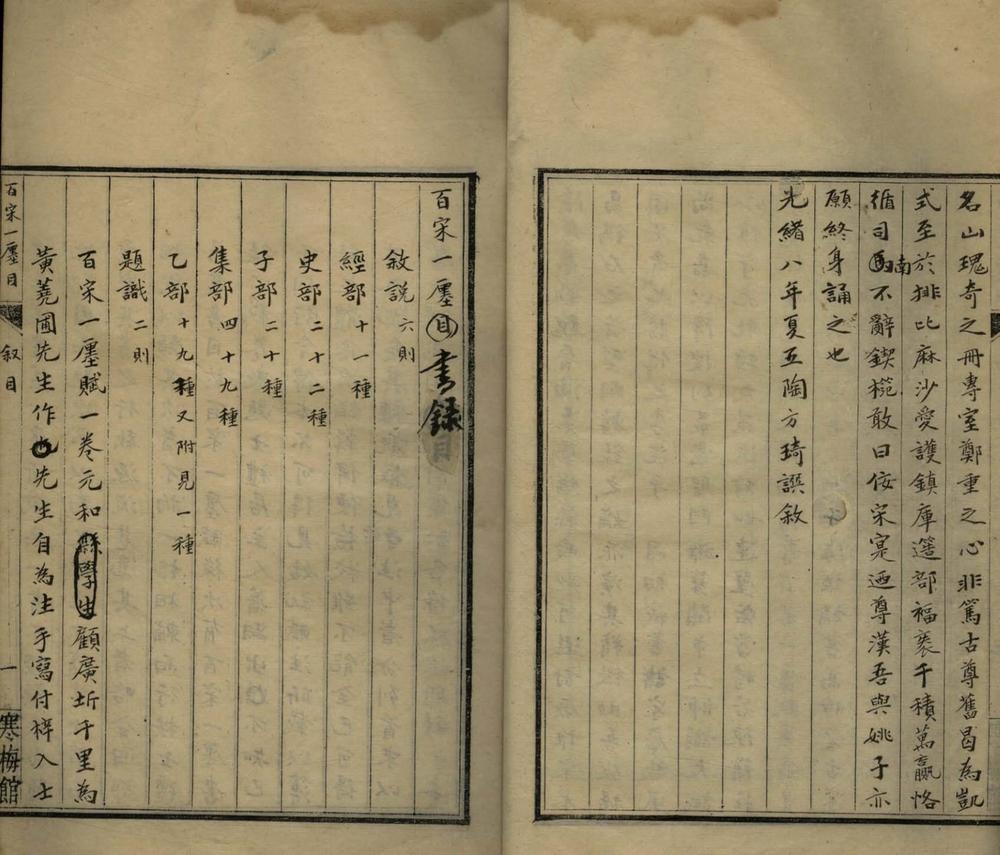 名山瑰奇之冊專室鄭重之心非篤古尊舊曷為凱
式至於排比麻沙愛護鎮庫籩部福裘千積萬贏恪
循司南不辭鍥㮄敢曰佞宋寔迺尊漢吾與姚子亦
願終身誦之也
光緒八年夏五陶方琦譔敘
百宋一廛書錄
敘說六則
經部十一種
史部二十二種
子部二十種
集部四十九種
乙部十九種又附見一種
題識二則
百宋一廛賦一卷元和縣學生顧廣圻千里為
黃蕘圃先生作也先生自為注手寫付梓入士
百宋一廛目
叙目
一
寒梅館